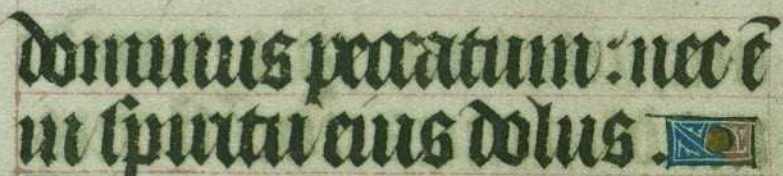 dominus peccatum : nec ē
in spiritu eius dolus .